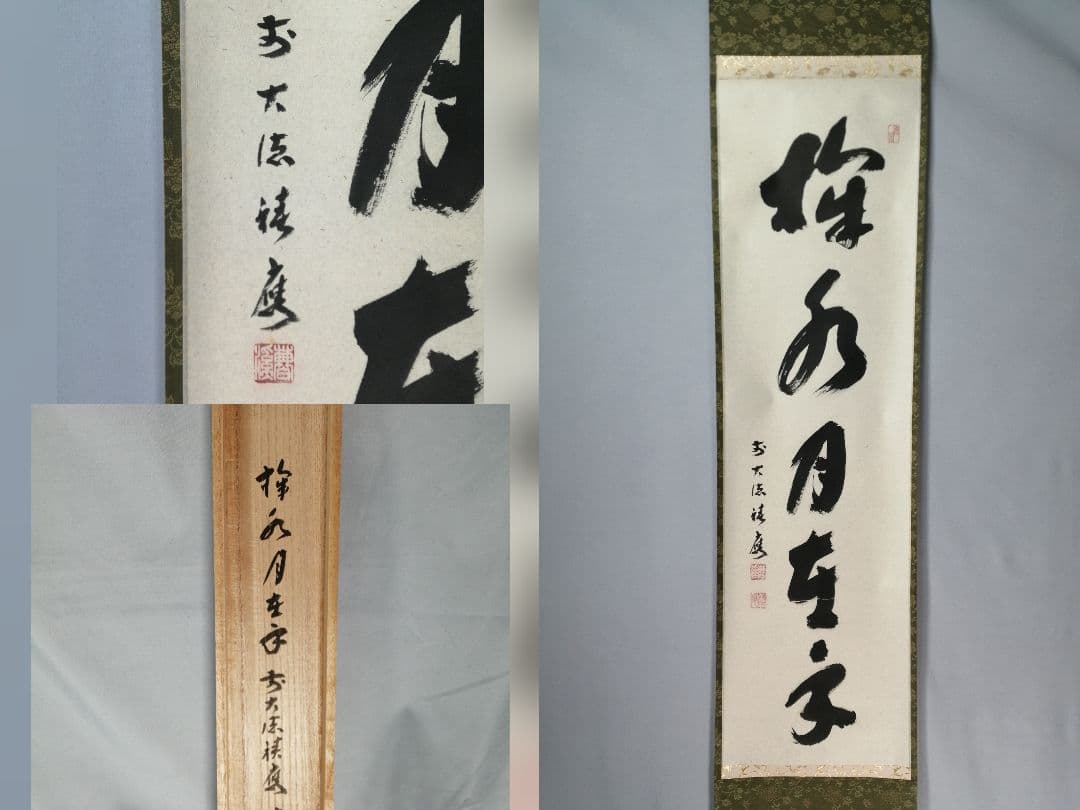 掬水月在手
前大徳積應
月在
前大徳積應
掬水月在手 前大徳積應